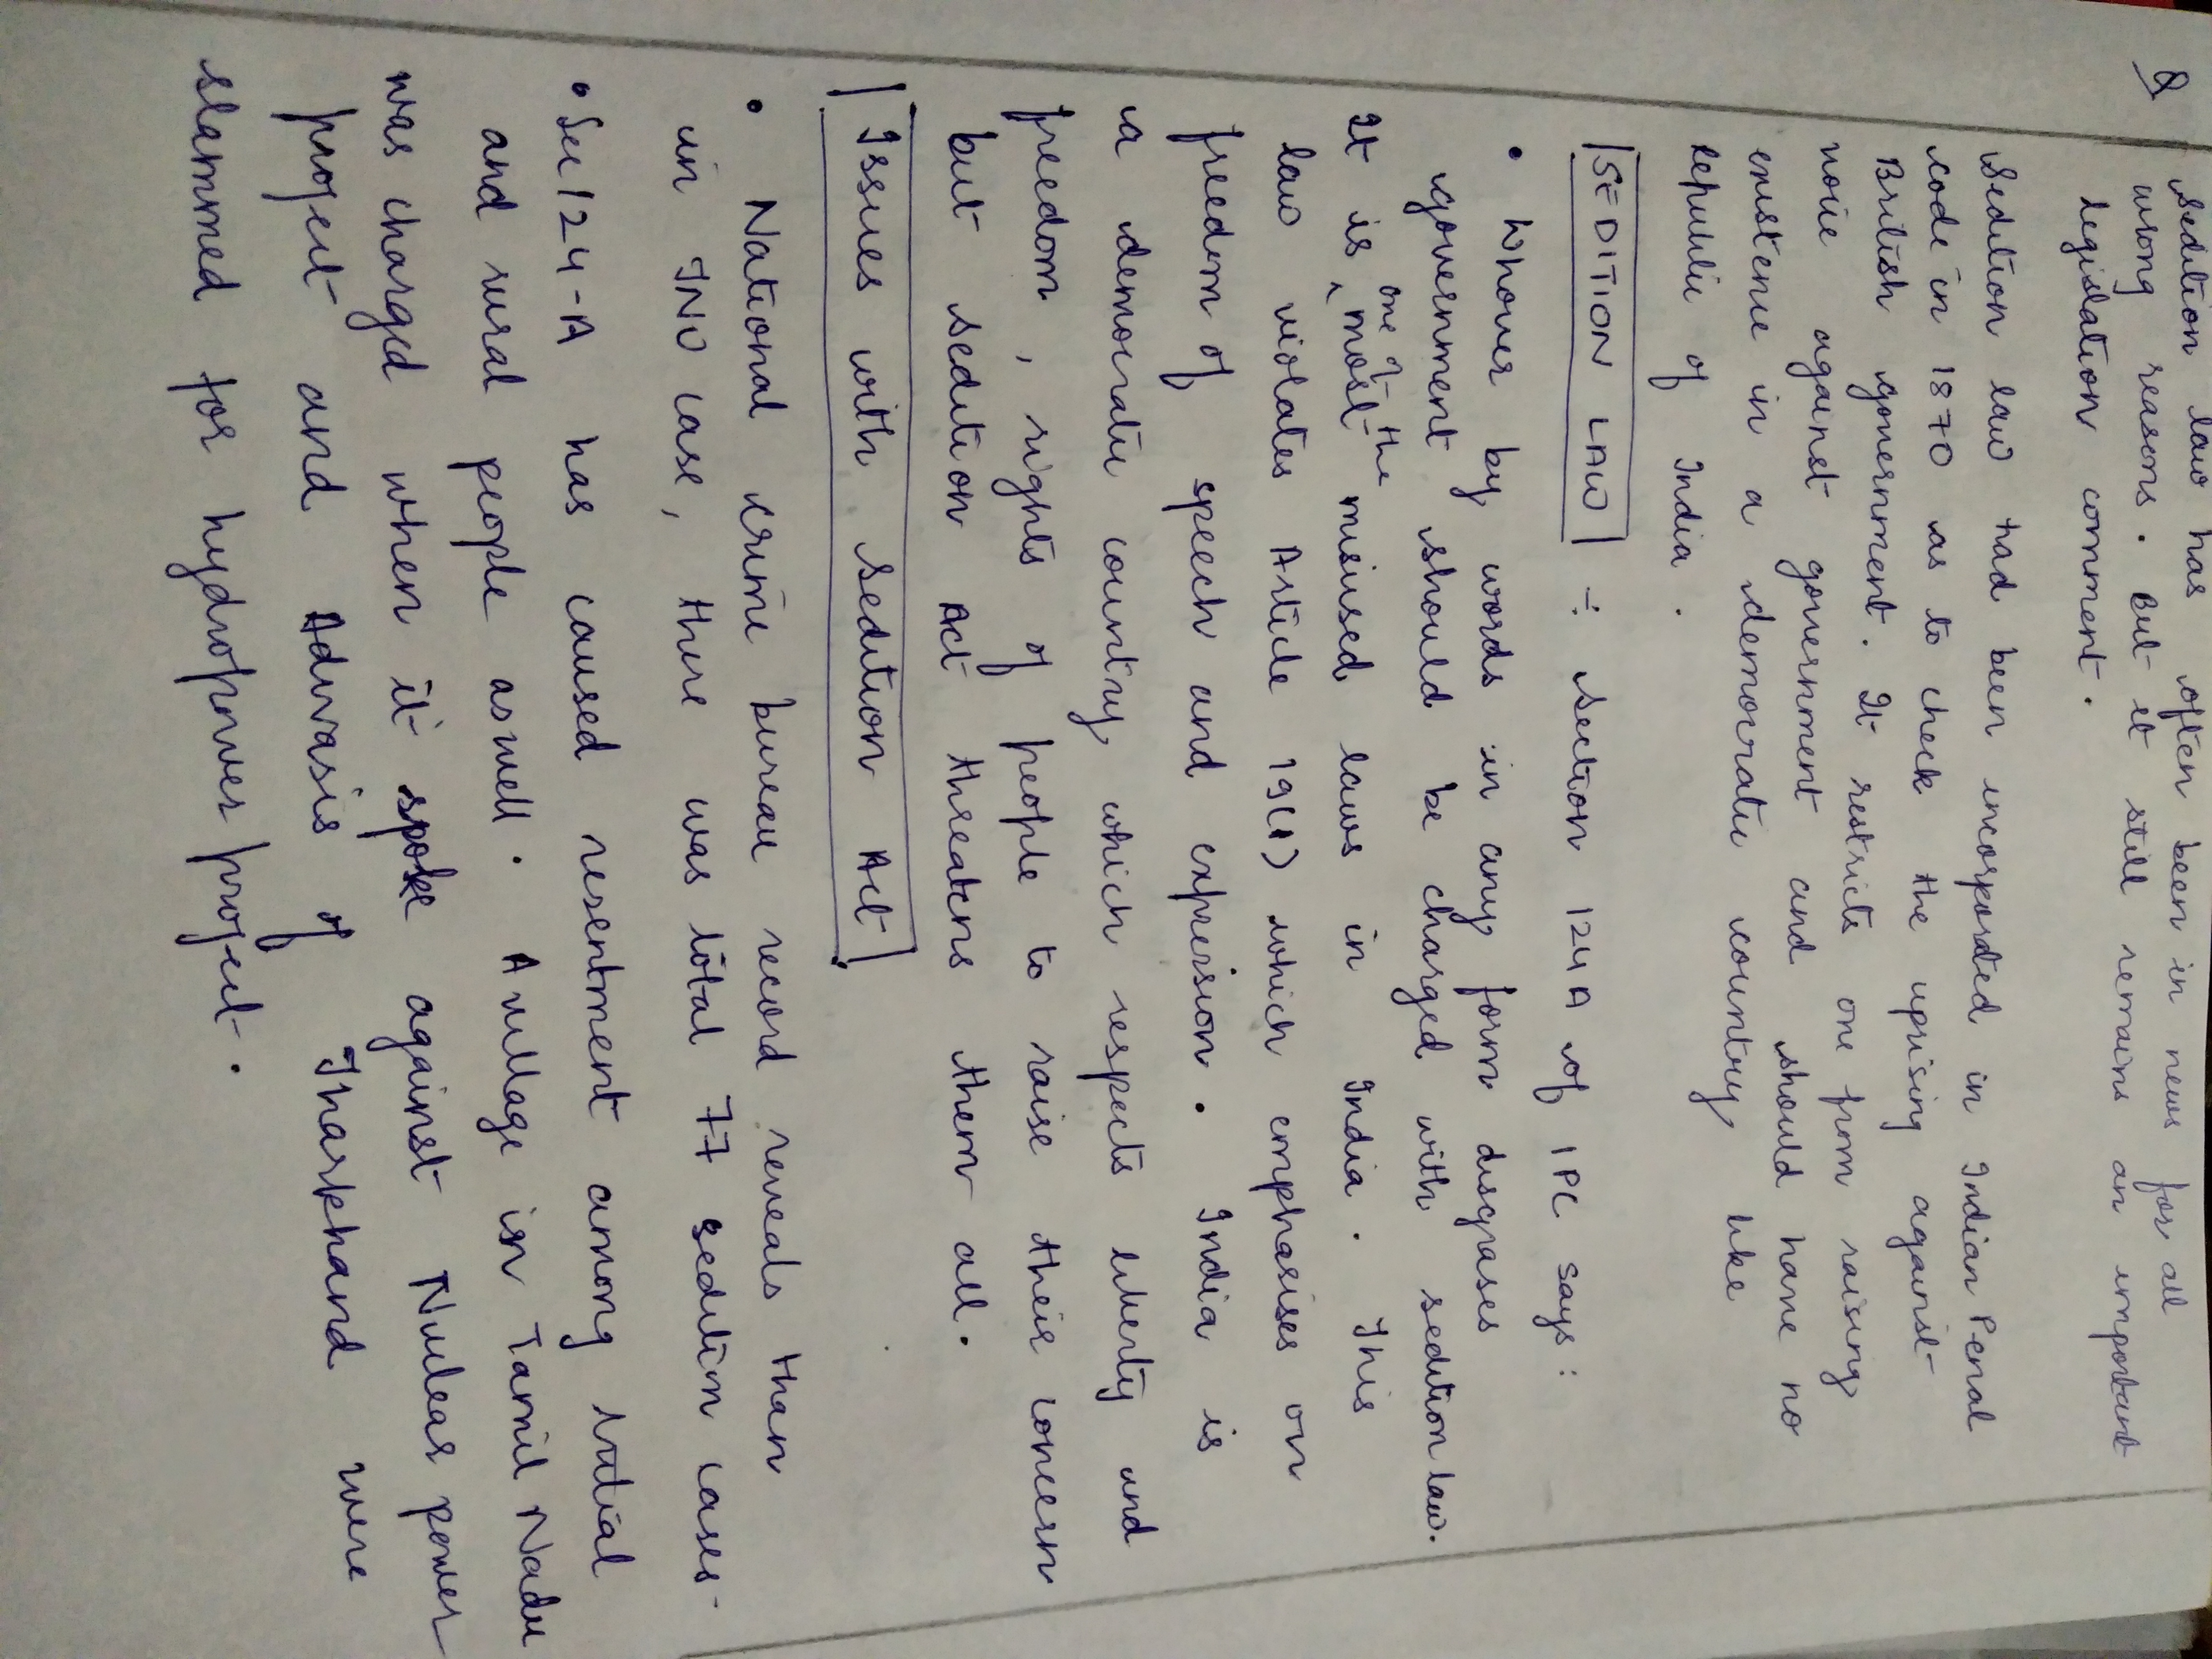 Q Sedition law has often been in news for all
wrong reasons. But it still remains an important
legislation comment.
Sedition law had been incorporated in Indian Penal
code in 1870 as to check the uprising against
British government. It restricts one from raising
voice against government and should have no
existence in a democratic country like
republic of India.
SEDITION LAW ÷ Section 124A of IPC says:
• Whover by words in any form disgrases
government should be charged with sedition law.
It is one of the most misused laws in India. This
law violates Article 19(1) which emphasises on
freedom of speech and expression. India is
a democratic country which respects liberty and
freedom, rights of people to raise their concern
but sedition Act threatens them all.
Issues with Sedition Act
• National crime bureau record reveals than
in JNU case, there was total 77 sedition cases.
• Sec 124-A has caused resentment among
and rural people aswell. A village in Tamil Nadu
was charged when it spoke against Nuclear power
project and Adivasis of Jharkhand were
slammed for hydropower project.